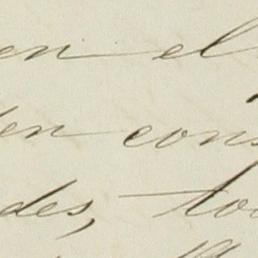 en el
en cons
des, to